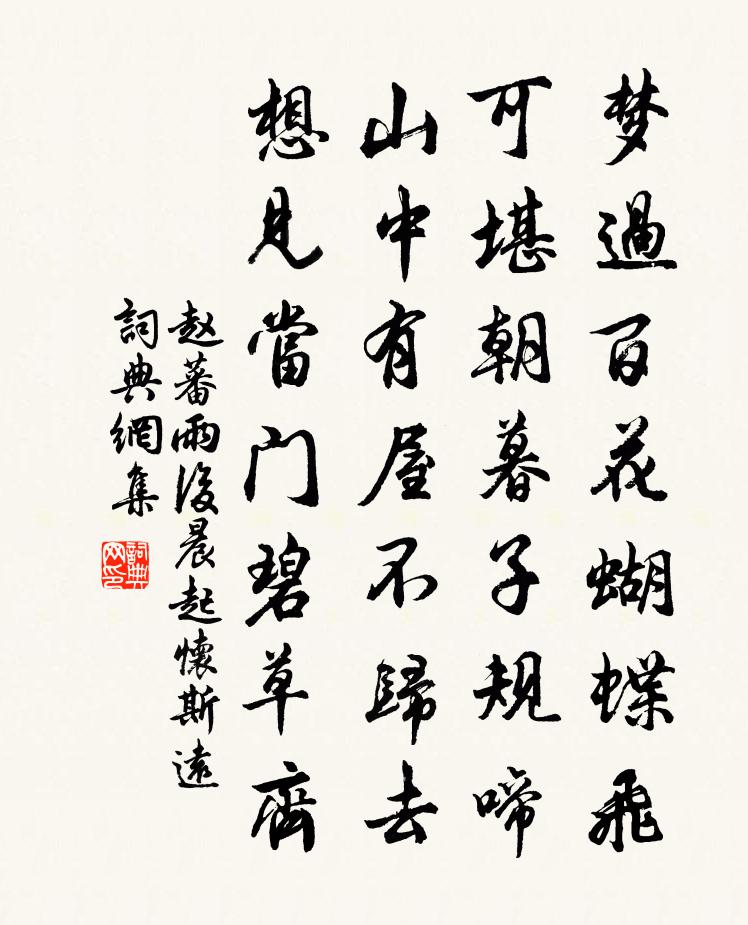 梦過百花蝴蝶飛
可堪朝暮子規啼
山中有屋不歸去
想見當门碧草齊
赵蕃雨後晨起懷斯遠
詞典網集
詞典网印